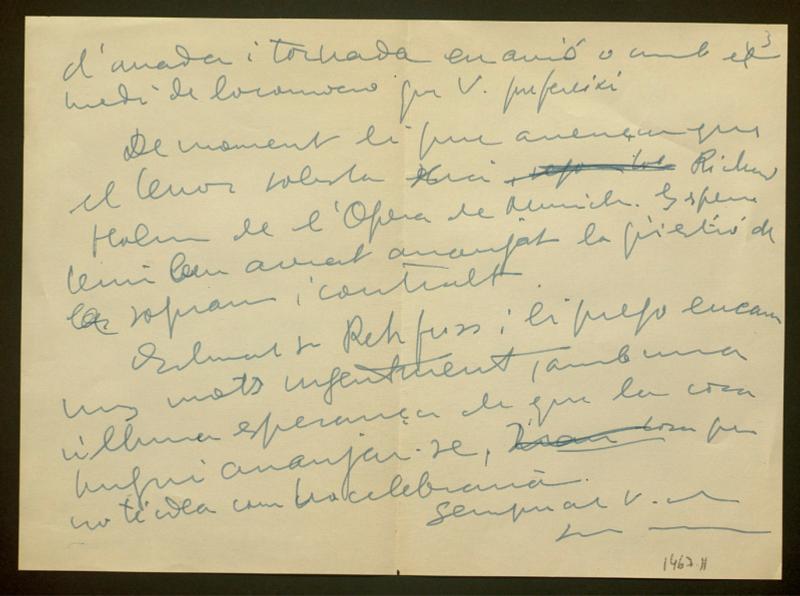 3
d'anada i tornada en avió o amb el
medi de locomoció que V. prefereixi
De moment li puc avençar que
el tenor solista serà Richard
Holm de l'Opera de Munich. Espero
tenir ben aviat arranjat la qüestió de
la soprano i contralt
Estimat Sr Rehfuss i li prego encara
uns mots urgentment, amb una
última esperança de que la cosa
pugui arranjar-se, cosa que
no té idea com ho celebraria.
Sempre at V.
1463.H